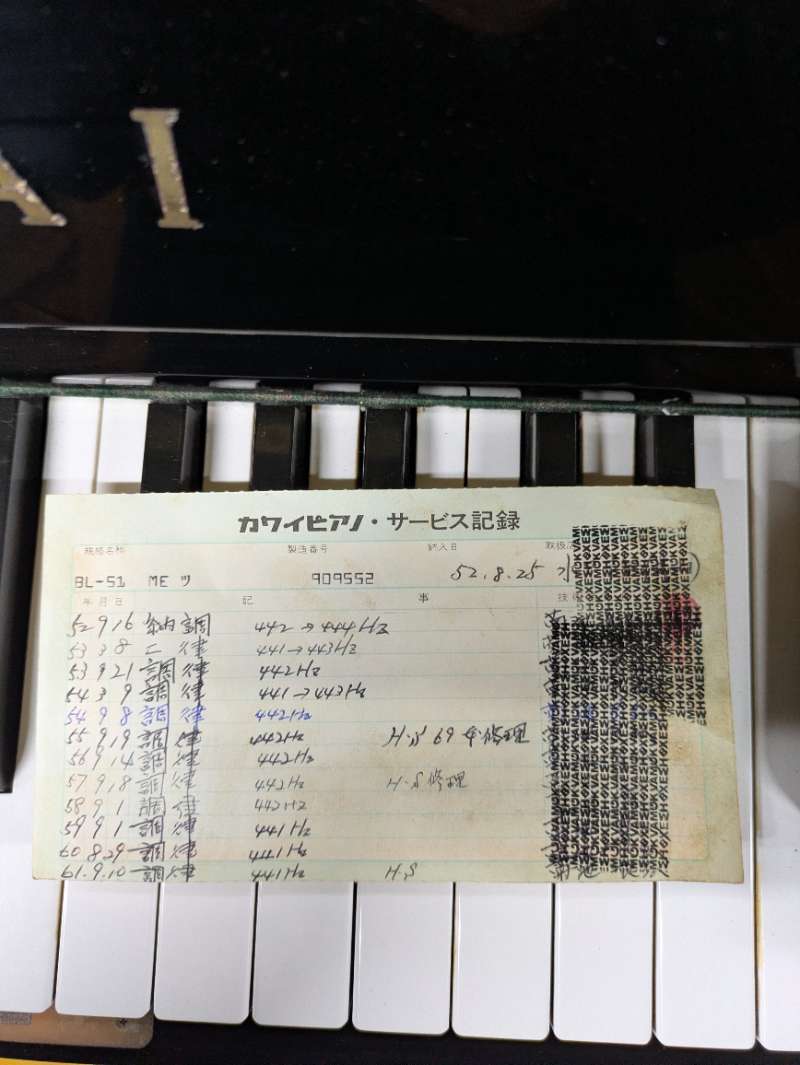 AI
カワイピアノ・サービス記録
規格名称 製造番号 納入日 取扱店
BL-51 MEツ 909552 52.8.25
年月日 記 事 技
52 9 16 納調 442→444Hz
53 3 8 二律 441→443Hz
53 9 21 調律 442Hz
54 3 9 調律 441→443Hz
54 9 8 調律 442Hz
55 9 19 調律 442Hz H.S 69本修理
56 9 14 調律 442Hz
57 9.18 調律 442Hz H.S修理
58 9 1 調律 442Hz
59 9 1 調律 441Hz
60 8.29 調律 441Hz
61.9.10 調律 441Hz H.S